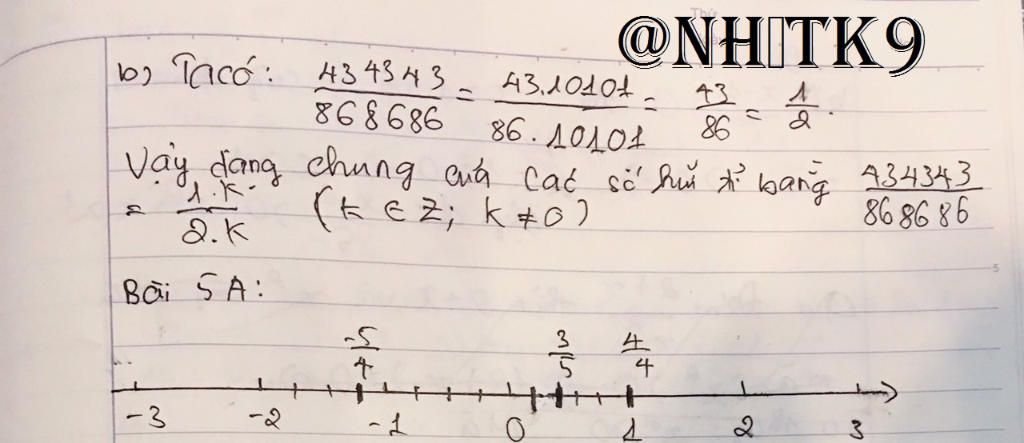 @NHITK9
b) Ta có: 434343/868686 = 43.10101/86.10101 = 43/86 = 1/2.
Vậy dạng chung của các số hữu tỉ bằng 434343/868686
= 1.k/2.k (k ∈ Z; k ≠ 0)
Bài 5A:
-5/4 3/5 4/4
-3 -2 -1 0 1 2 3